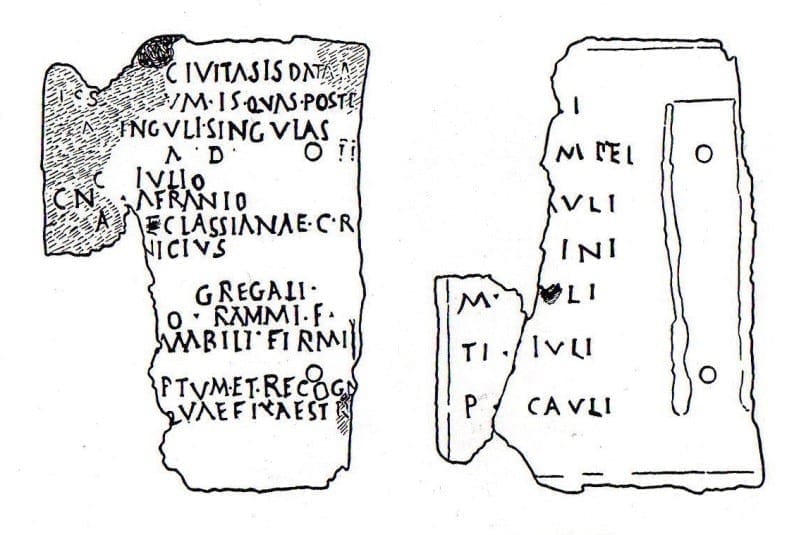 CIVITAS IS DATA
ICS VM·IS·QVAS·POSTE
A NGVLI·SINGVLAS
A·D· II
C IVLIO
CN· AFRANIO
A CLASSIANAE·C·R
NICIVS
GREGALI·
O·RAMMI·F·
AMBILI·FIRMI
PTVM·ET·RECOG
QVAE FIXA EST
I
M PEI
AVLI
INI
M· LI
TI· IVLI
P· CAVLI